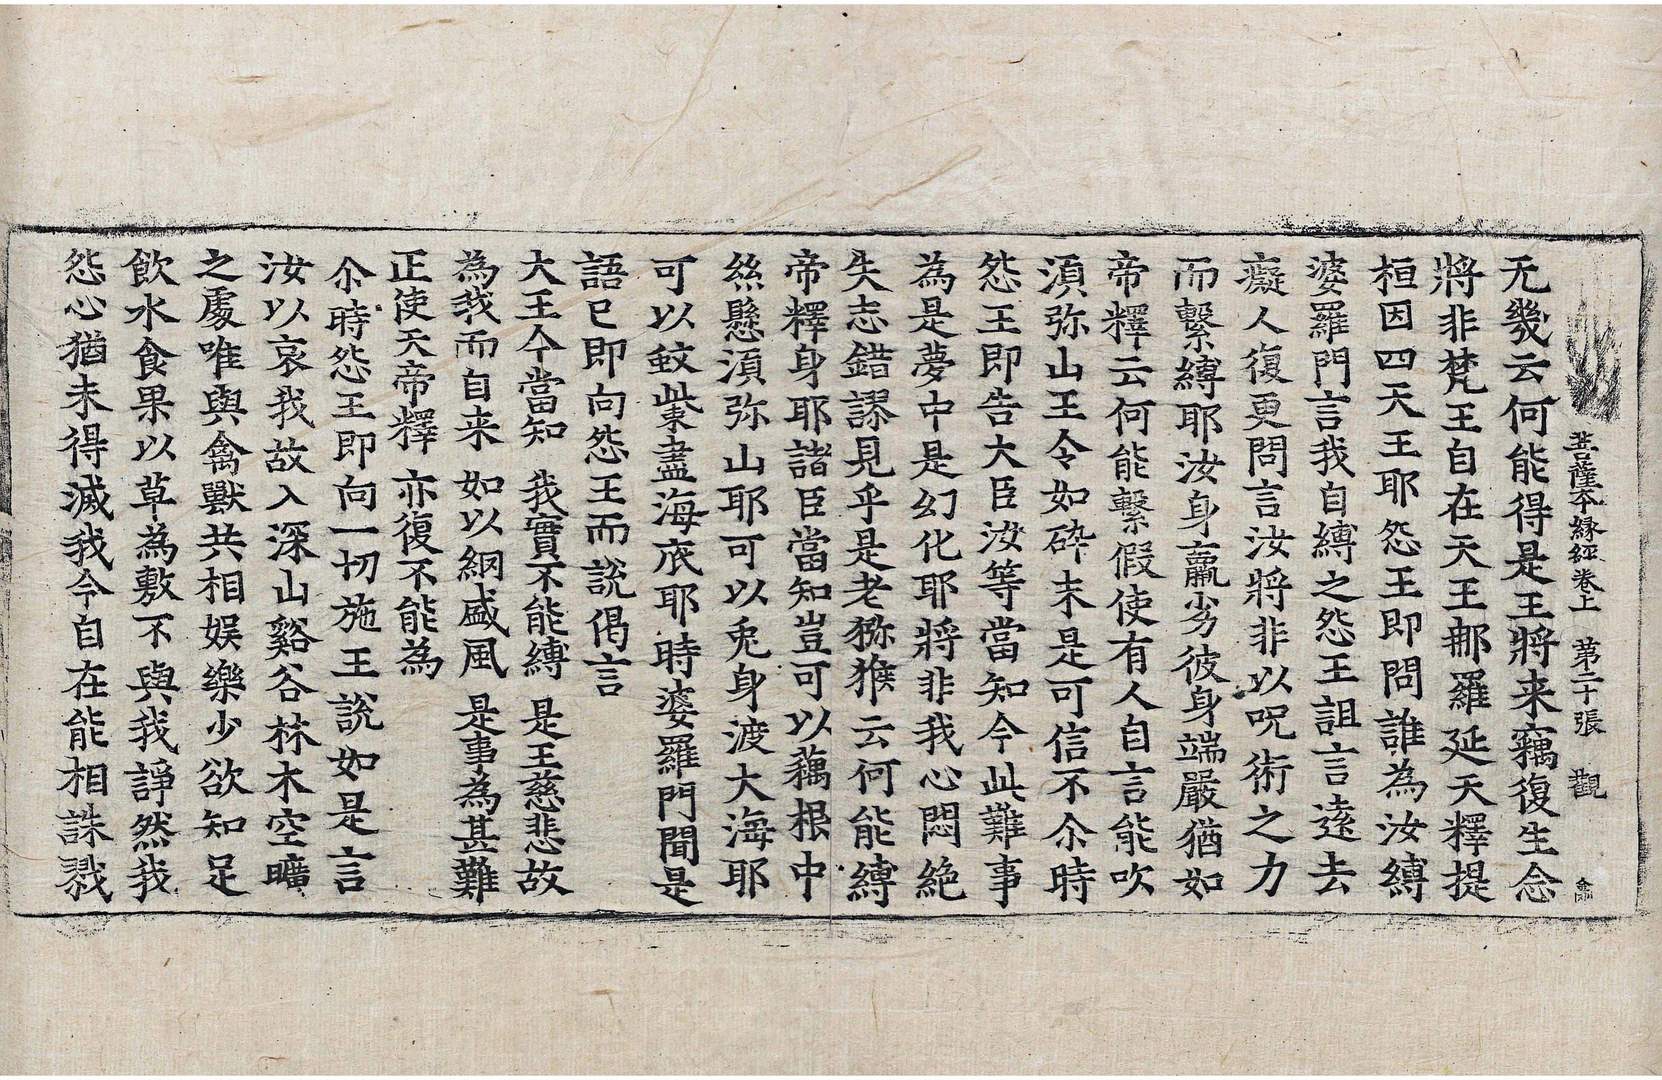 菩薩本緣經卷上　第二十張　觀
无幾云何能得是王將来竊復生念
將非梵王自在天王那羅延天釋提
桓因四天王耶怨王即問誰為汝縛
婆羅門言我自縛之怨王詛言遠去
癡人復更問言汝將非以呪術之力
而繫縛耶汝身羸劣彼身端嚴猶如
帝釋云何能繫假使有人自言能吹
湏弥山王令如碎末是可信不尒時
怨王即告大臣汝等當知今此難事
為是夢中是幻化耶將非我心悶絶
失志錯謬見乎是老猕猴云何能縛
帝釋身耶諸臣當知豈可以藕根中
絲懸湏弥山耶可以兎身渡大海耶
可以蚊𭉨盡海底耶時婆羅門聞是
語已即向怨王而說偈言
大王今當知　我實不能縛　是王慈悲故
為我而自来　如以網盛風　是事為甚難
正使天帝釋　亦復不能為
尒時怨王即向一切施王說如是言
汝以哀我故入深山谿谷林木空曠
之處唯與禽獸共相娛樂少欲知足
飲水食果以草為敷不與我諍然我
怨心猶未得滅我今自在能相誅戮